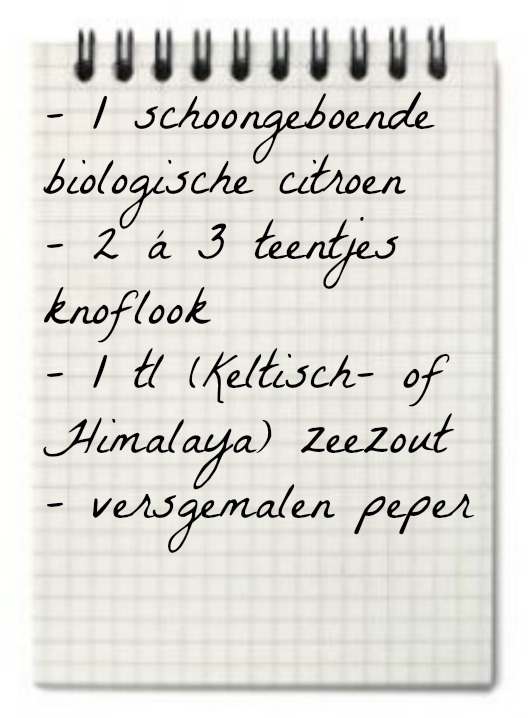 - 1 schoongeboende
biologische citroen
- 2 á 3 teentjes
knoflook
- 1 tl (Keltisch- of
Himalaya) zeezout
- versgemalen peper